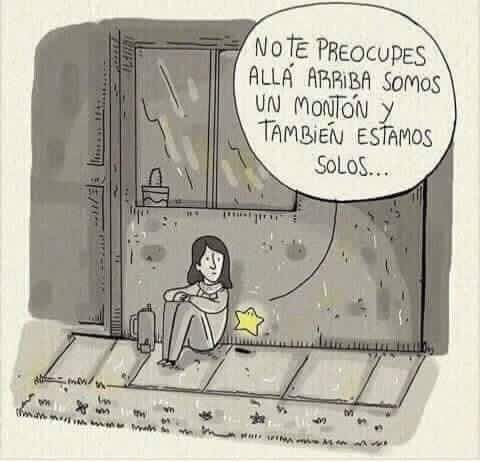 NO TE PREOCUPES
ALLÁ ARRIBA SOMOS
UN MONTÓN Y
TAMBIÉN ESTAMOS
SOLOS...